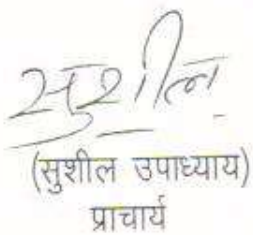 सुशील
(सुशील उपाध्याय)
प्राचार्य